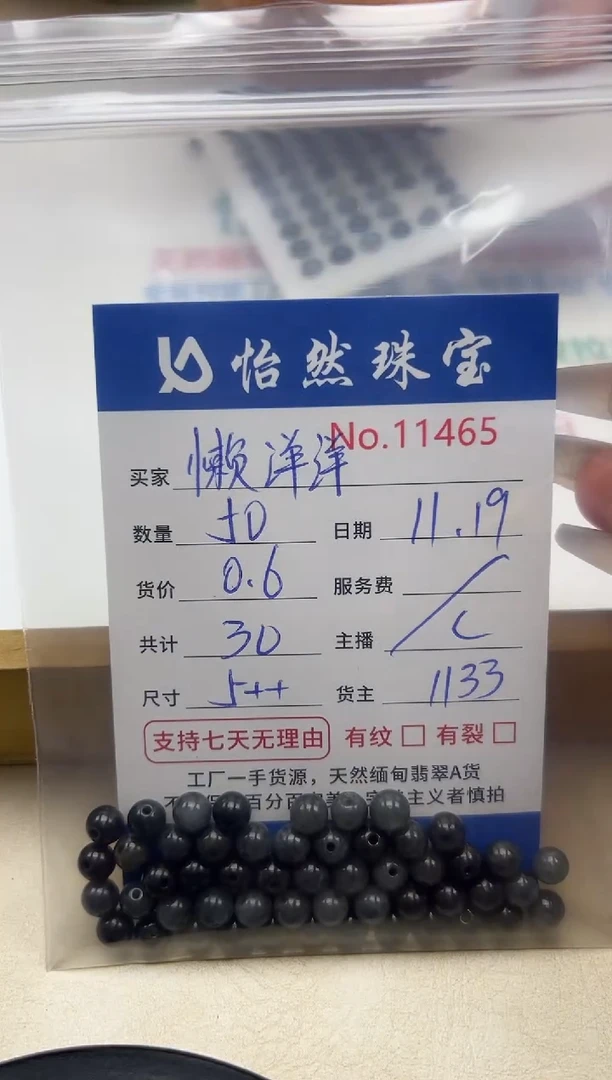 怡然珠宝
No.11465
买家 懒洋洋
数量 50 日期 11.19
货价 0.6 服务费 /
共计 30 主播 C
尺寸 5++ 货主 1133
支持七天无理由 有纹 □ 有裂 □
工厂一手货源，天然缅甸翡翠A货
百分百 主义者慎拍